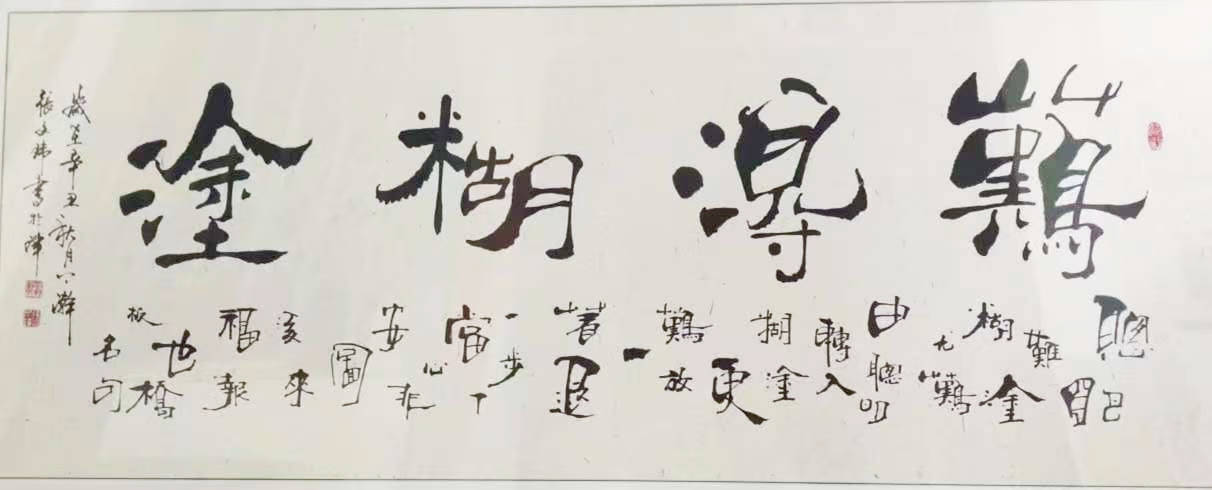 難得糊塗
聰明難糊塗尤難由聰明轉入糊塗更難放一着退一步當下心安非圖後來福報也板橋名句
歲在辛丑秋月下澣
張文書於津